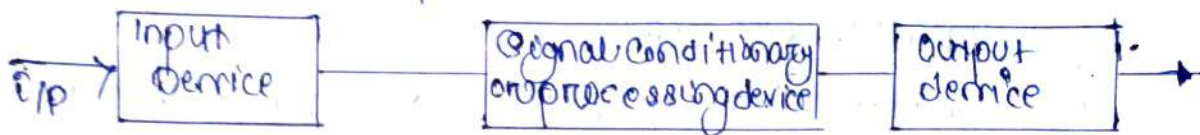 i/p
Input
Device
Signal Conditionary
or processing device
Output
device